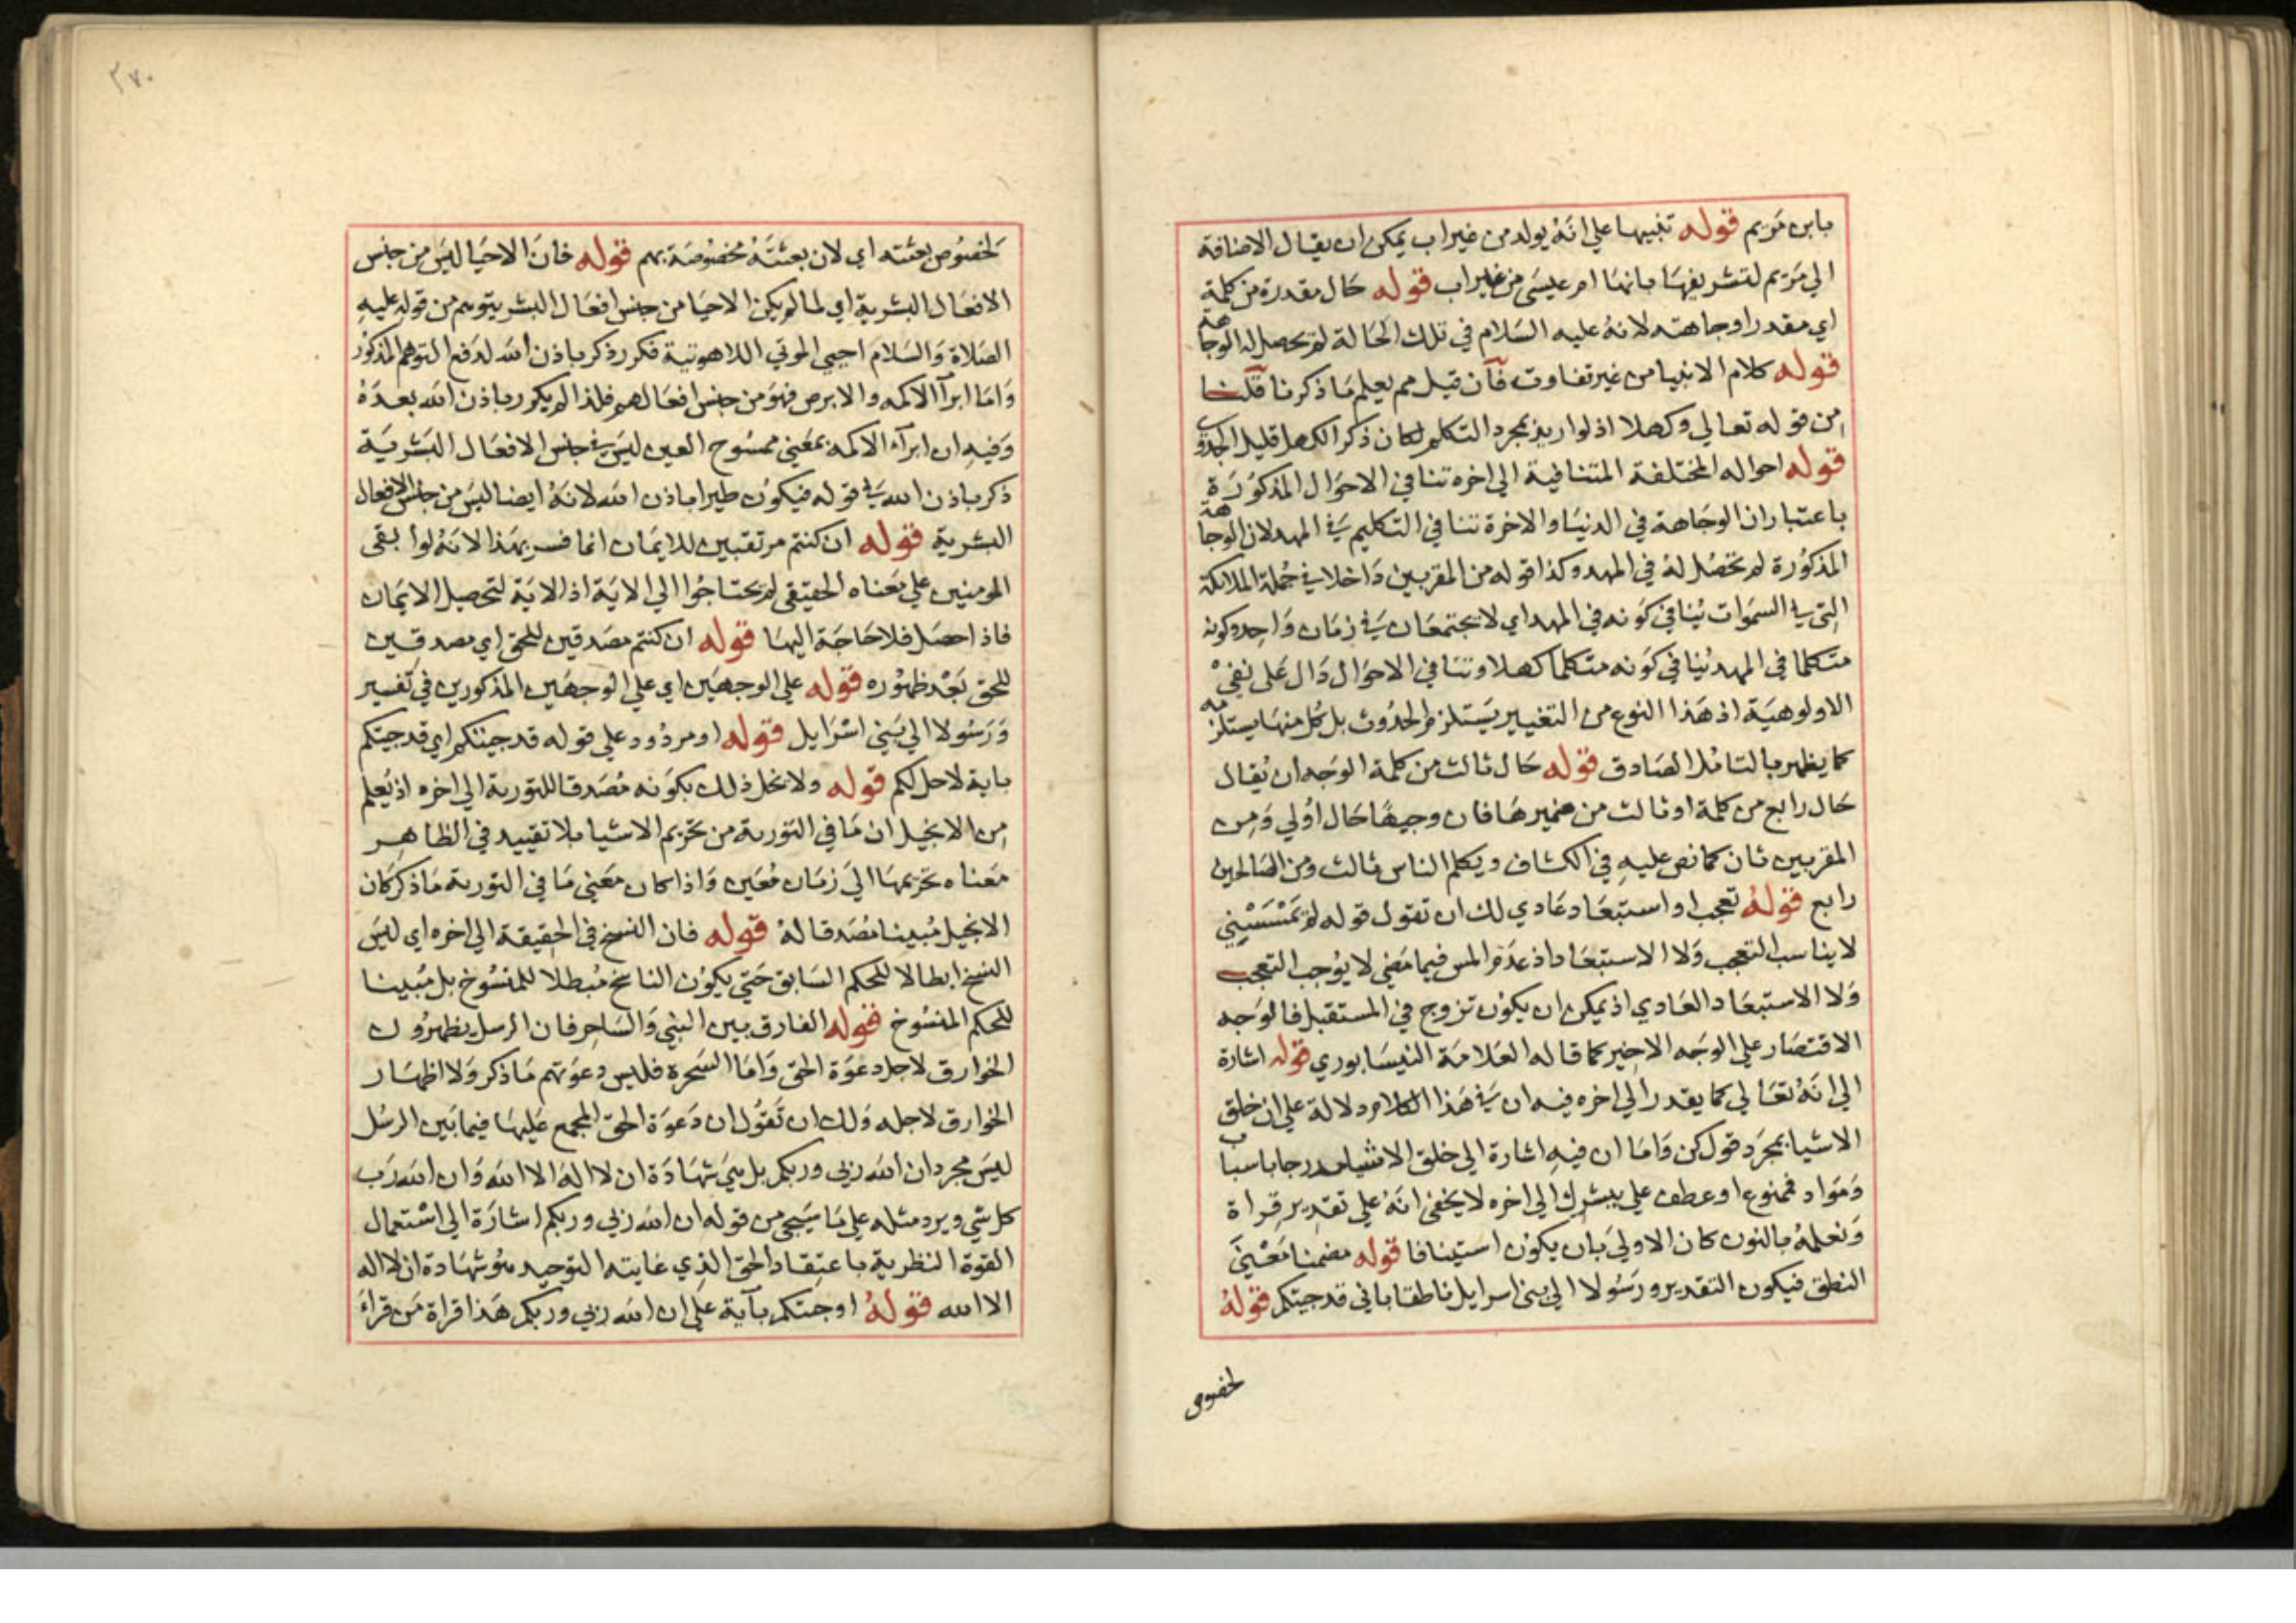 بابن مريم قوله تنبيها علي انه يولد من غير اب يمكن ان يقال الاضافة
الي مريم لتشريفها بانها ام عيسي من غير اب قوله حال مقدرة من كلمة
اي مقدرا وجاهته لانه عليه السلام في تلك الحالة لم تحصل له الوجاهة
قوله كلام الانبيا من غير تفاوت فان قيل مم يعلم ما ذكرنا قلنا
من قوله تعالي وكهلا اذ لو اريد بمجرد التكلم لكان ذكر الكهل قليل الجدوي
قوله احواله المختلفة المتنافية الي اخره تنافي الاحوال المذكورة
باعتبار ان الوجاهة في الدنيا والاخرة تنافي التكليم في المهد لان الوجاهة
المذكورة لم تحصل له في المهد وكذا قوله من المقربين داخلا في جملة الملائكة
التي في السموات ينافي كونه في المهد اي لا يجتمعان في زمان واحد وكونه
متكلما في المهد ينافي كونه متكلما كهلا وتنافي الاحوال دال علي نفي
الاولوهية اذ هذا النوع من التغيير يستلزم الحدوث بل كل منها يستلزمه
كما يظهر بالتامل الصادق قوله حال ثالث من كلمة الوجه ان يقال
حال رابع من كلمة او ثالث من ضميرها فان وجيها حال اولي ومن
المقربين ثان كما نص عليه في الكشاف ويكلم الناس ثالث ومن الصالحين
رابع قوله تعجب او استبعاد عادي لك ان تقول قوله لم يمسسني
لا يناسب التعجب ولا الاستبعاد اذ عدم المس فيما مضي لا يوجب التعجب
ولا الاستبعاد العادي اذ يمكن ان يكون تزوج في المستقبل فالوجه
الاقتصار علي الوجه الاخير كما قاله العلامة النيسابوري قوله اشارة
الي انه تعالي كما يقدر الي اخره فيه ان في هذا الكلام دلالة علي ان خلق
الاشيا بمجرد قول كن واما ان فيه اشارة الي خلق الاشيا مدرجا باسباب
ومواد فممنوع او عطف علي يبشرك الي اخره لا يخفي انه علي تقدير قراة
ونعلمه بالنون كان الاولي بان يكون استينافا قوله مضمنا معني
النطق فيكون التقدير ورسولا الي بني اسرايل ناطقا باني قد جيتكم قوله
لخصوص
٣٧٠
لخصوص بعثته اي لان بعثته مخصوصة بهم قوله فان الاحيا ليس من جنس
الافعال البشرية اي لما لم يكن الاحيا من جنس افعال البشر يتوهم من قوله عليه
الصلاة والسلام احيي الموتي اللاهوتية فكرر ذكر باذن الله لدفع التوهم المذكور
واما ابرآ الاكمه والابرص فهو من جنس افعالهم فلذا لم يكرر باذن الله بعده
وفيه ان ابرآء الاكمه بمعني ممسوح العين ليس في جنس الافعال البشرية
ذكر باذن الله في قوله فيكون طيرا باذن الله لانه ايضا ليس من جنس الافعال
البشرية قوله ان كنتم مرتقبين للايمان انما فسر بهذا لانه لو ابقي
المومنين علي معناه الحقيقي لم يحتاجوا الي الاية اذ الاية لتحصيل الايمان
فاذا حصل فلا حاجة اليها قوله ان كنتم مصدقين للحق اي مصدقين
للحق بعد ظهوره قوله علي الوجهين اي علي الوجهين المذكورين في تفسير
ورسولا الي بني اسرايل قوله او مردود علي قوله قد جيتكم اي قد جيتكم
باية لاحل لكم قوله ولا يخل ذلك بكونه مصدقا للتورية الي اخره اذ يعلم
من الانجيل ان ما في التورية من تحريم الاشيا بلا تقييد في الظاهر
معناه تحريمها الي زمان معين واذا كان معني ما في التورية ما ذكر كان
الانجيل مبينا مصدقا له قوله فان النسخ في الحقيقة الي اخره اي ليس
النسخ ابطالا للحكم السابق حتي يكون الناسخ مبطلا للمنسوخ بل مبينا
للحكم المنسوخ قوله الفارق بين النبي والساحر فان الرسل يظهرون
الخوارق لاجل دعوة الحق واما السحرة فليس دعوتهم ما ذكر ولا اظهار
الخوارق لاجله ولك ان تقول ان دعوة الحق المجمع عليها فيما بين الرسل
ليس مجرد ان الله ربي وربكم بل هي شهادة ان لا اله الا الله وان الله رب
كل شي ويرد مثله علي ما سيجي من قوله ان الله ربي وربكم اشارة الي استعمال
القوة النظرية باعتقاد الحق الذي غايته التوحيد هو شهادة ان لا اله
الا الله قوله او جيتكم بآية علي ان الله ربي وربكم هذا قراة من قراء